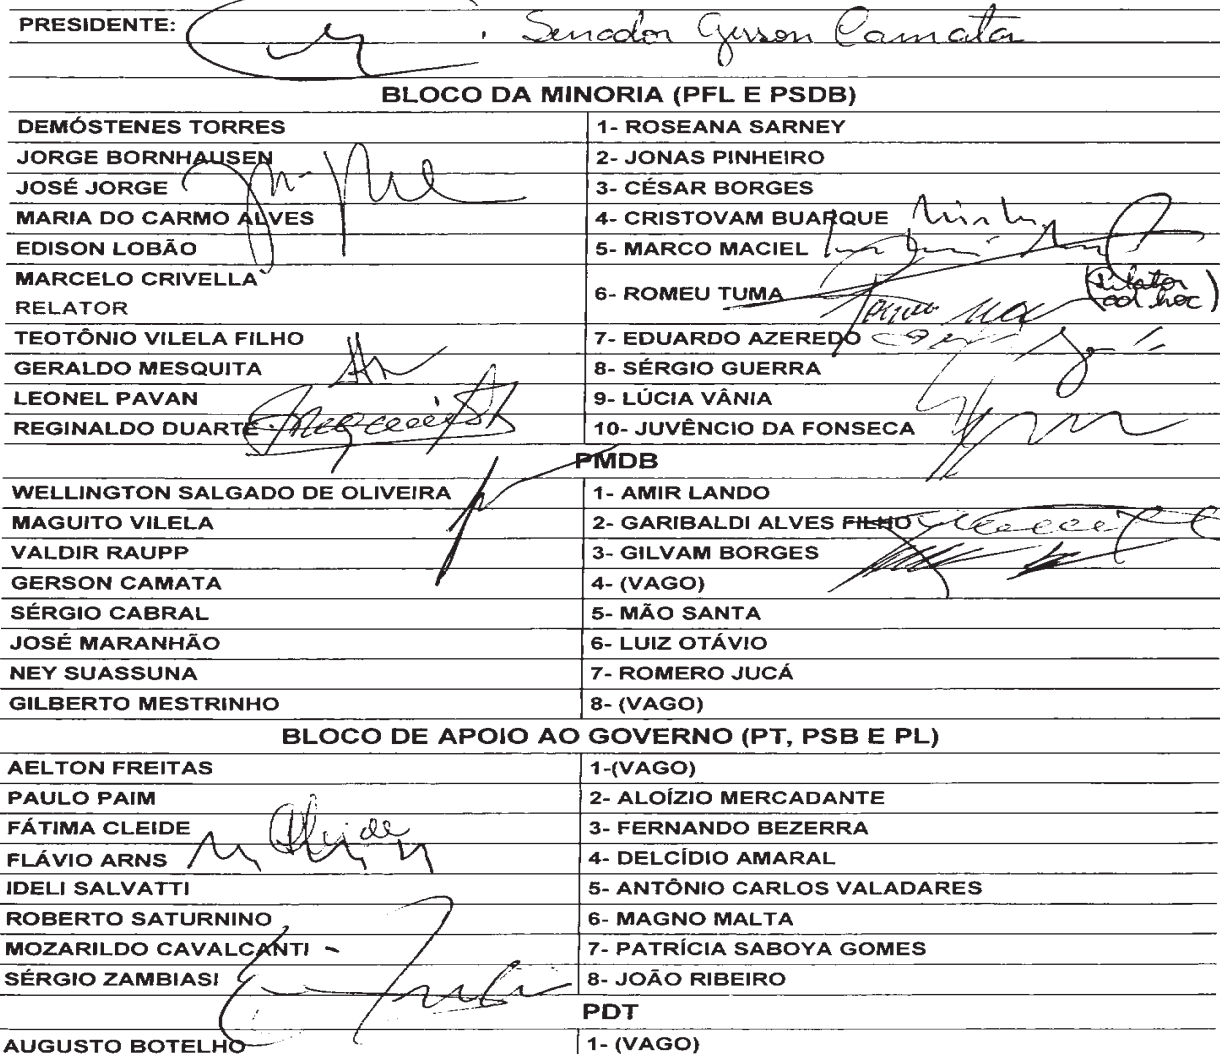 PRESIDENTE: Senador Gerson Camata
BLOCO DA MINORIA (PFL E PSDB)
DEMÓSTENES TORRES 1- ROSEANA SARNEY
JORGE BORNHAUSEN 2- JONAS PINHEIRO
JOSÉ JORGE 3- CÉSAR BORGES
MARIA DO CARMO ALVES 4- CRISTOVAM BUARQUE
EDISON LOBÃO 5- MARCO MACIEL
MARCELO CRIVELLA
RELATOR 6- ROMEU TUMA (Relator ad hoc)
TEOTÔNIO VILELA FILHO 7- EDUARDO AZEREDO
GERALDO MESQUITA 8- SÉRGIO GUERRA
LEONEL PAVAN 9- LÚCIA VÂNIA
REGINALDO DUARTE 10- JUVÊNCIO DA FONSECA
PMDB
WELLINGTON SALGADO DE OLIVEIRA 1- AMIR LANDO
MAGUITO VILELA 2- GARIBALDI ALVES FILHO
VALDIR RAUPP 3- GILVAM BORGES
GERSON CAMATA 4- (VAGO)
SÉRGIO CABRAL 5- MÃO SANTA
JOSÉ MARANHÃO 6- LUIZ OTÁVIO
NEY SUASSUNA 7- ROMERO JUCÁ
GILBERTO MESTRINHO 8- (VAGO)
BLOCO DE APOIO AO GOVERNO (PT, PSB E PL)
AELTON FREITAS 1-(VAGO)
PAULO PAIM 2- ALOÍZIO MERCADANTE
FÁTIMA CLEIDE 3- FERNANDO BEZERRA
FLÁVIO ARNS 4- DELCÍDIO AMARAL
IDELI SALVATTI 5- ANTÔNIO CARLOS VALADARES
ROBERTO SATURNINO 6- MAGNO MALTA
MOZARILDO CAVALCANTI 7- PATRÍCIA SABOYA GOMES
SÉRGIO ZAMBIASI 8- JOÃO RIBEIRO
PDT
AUGUSTO BOTELHO 1- (VAGO)